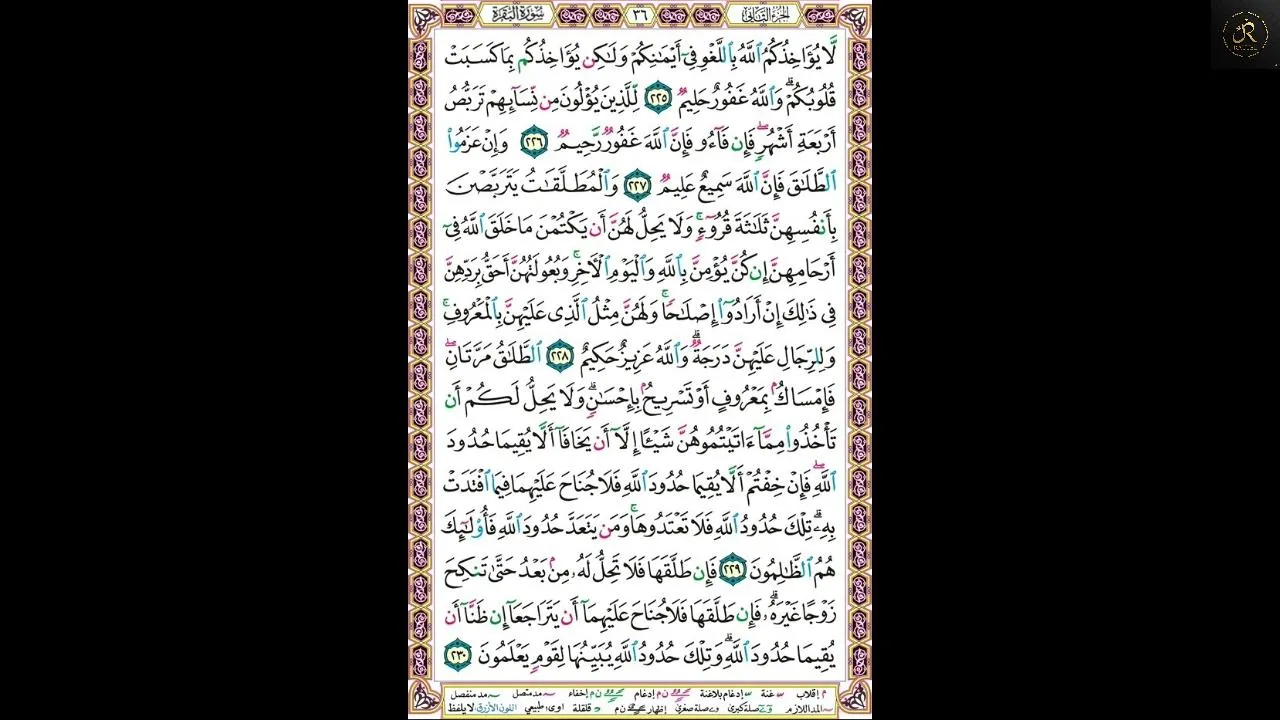 سُورَةُ الْبَقَرَة ٣٦ الجُزءُ الثَّانِي
لَّا يُؤَاخِذُكُمُ ٱللَّهُ بِٱللَّغْوِ فِىٓ أَيْمَٰنِكُمْ وَلَٰكِن يُؤَاخِذُكُم بِمَا كَسَبَتْ
قُلُوبُكُمْ ۗ وَٱللَّهُ غَفُورٌ حَلِيمٌ ٢٢٥ لِّلَّذِينَ يُؤْلُونَ مِن نِّسَآئِهِمْ تَرَبُّصُ
أَرْبَعَةِ أَشْهُرٍ ۖ فَإِن فَآءُو فَإِنَّ ٱللَّهَ غَفُورٌ رَّحِيمٌ ٢٢٦ وَإِنْ عَزَمُوا۟
ٱلطَّلَٰقَ فَإِنَّ ٱللَّهَ سَمِيعٌ عَلِيمٌ ٢٢٧ وَٱلْمُطَلَّقَٰتُ يَتَرَبَّصْنَ
بِأَنفُسِهِنَّ ثَلَٰثَةَ قُرُوٓءٍ ۚ وَلَا يَحِلُّ لَهُنَّ أَن يَكْتُمْنَ مَا خَلَقَ ٱللَّهُ فِىٓ
أَرْحَامِهِنَّ إِن كُنَّ يُؤْمِنَّ بِٱللَّهِ وَٱلْيَوْمِ ٱلْءَاخِرِ ۚ وَبُعُولَتُهُنَّ أَحَقُّ بِرَدِّهِنَّ
فِى ذَٰلِكَ إِنْ أَرَادُوٓا۟ إِصْلَٰحًا ۚ وَلَهُنَّ مِثْلُ ٱلَّذِى عَلَيْهِنَّ بِٱلْمَعْرُوفِ ۚ
وَلِلرِّجَالِ عَلَيْهِنَّ دَرَجَةٌ ۗ وَٱللَّهُ عَزِيزٌ حَكِيمٌ ٢٢٨ ٱلطَّلَٰقُ مَرَّتَانِ ۖ
فَإِمْسَاكٌۢ بِمَعْرُوفٍ أَوْ تَسْرِيحٌۢ بِإِحْسَٰنٍ ۗ وَلَا يَحِلُّ لَكُمْ أَن
تَأْخُذُوا۟ مِمَّآ ءَاتَيْتُمُوهُنَّ شَيْـًٔا إِلَّآ أَن يَخَافَآ أَلَّا يُقِيمَا حُدُودَ
ٱللَّهِ ۖ فَإِنْ خِفْتُمْ أَلَّا يُقِيمَا حُدُودَ ٱللَّهِ فَلَا جُنَاحَ عَلَيْهِمَا فِيمَا ٱفْتَدَتْ
بِهِۦ ۗ تِلْكَ حُدُودُ ٱللَّهِ فَلَا تَعْتَدُوهَا ۚ وَمَن يَتَعَدَّ حُدُودَ ٱللَّهِ فَأُو۟لَٰٓئِكَ
هُمُ ٱلظَّٰلِمُونَ ٢٢٩ فَإِن طَلَّقَهَا فَلَا تَحِلُّ لَهُۥ مِنۢ بَعْدُ حَتَّىٰ تَنكِحَ
زَوْجًا غَيْرَهُۥ ۗ فَإِن طَلَّقَهَا فَلَا جُنَاحَ عَلَيْهِمَآ أَن يَتَرَاجَعَآ إِن ظَنَّآ أَن
يُقِيمَا حُدُودَ ٱللَّهِ ۗ وَتِلْكَ حُدُودُ ٱللَّهِ يُبَيِّنُهَا لِقَوْمٍ يَعْلَمُونَ ٢٣٠
إقلاب غنة إدغام بلاغنة إدغام إخفاء مد متصل مد منفصل
المد اللازم صلة كبرى صلة صغرى إظهار قلقلة طبيعي اللون الأزرق لا يلفظ